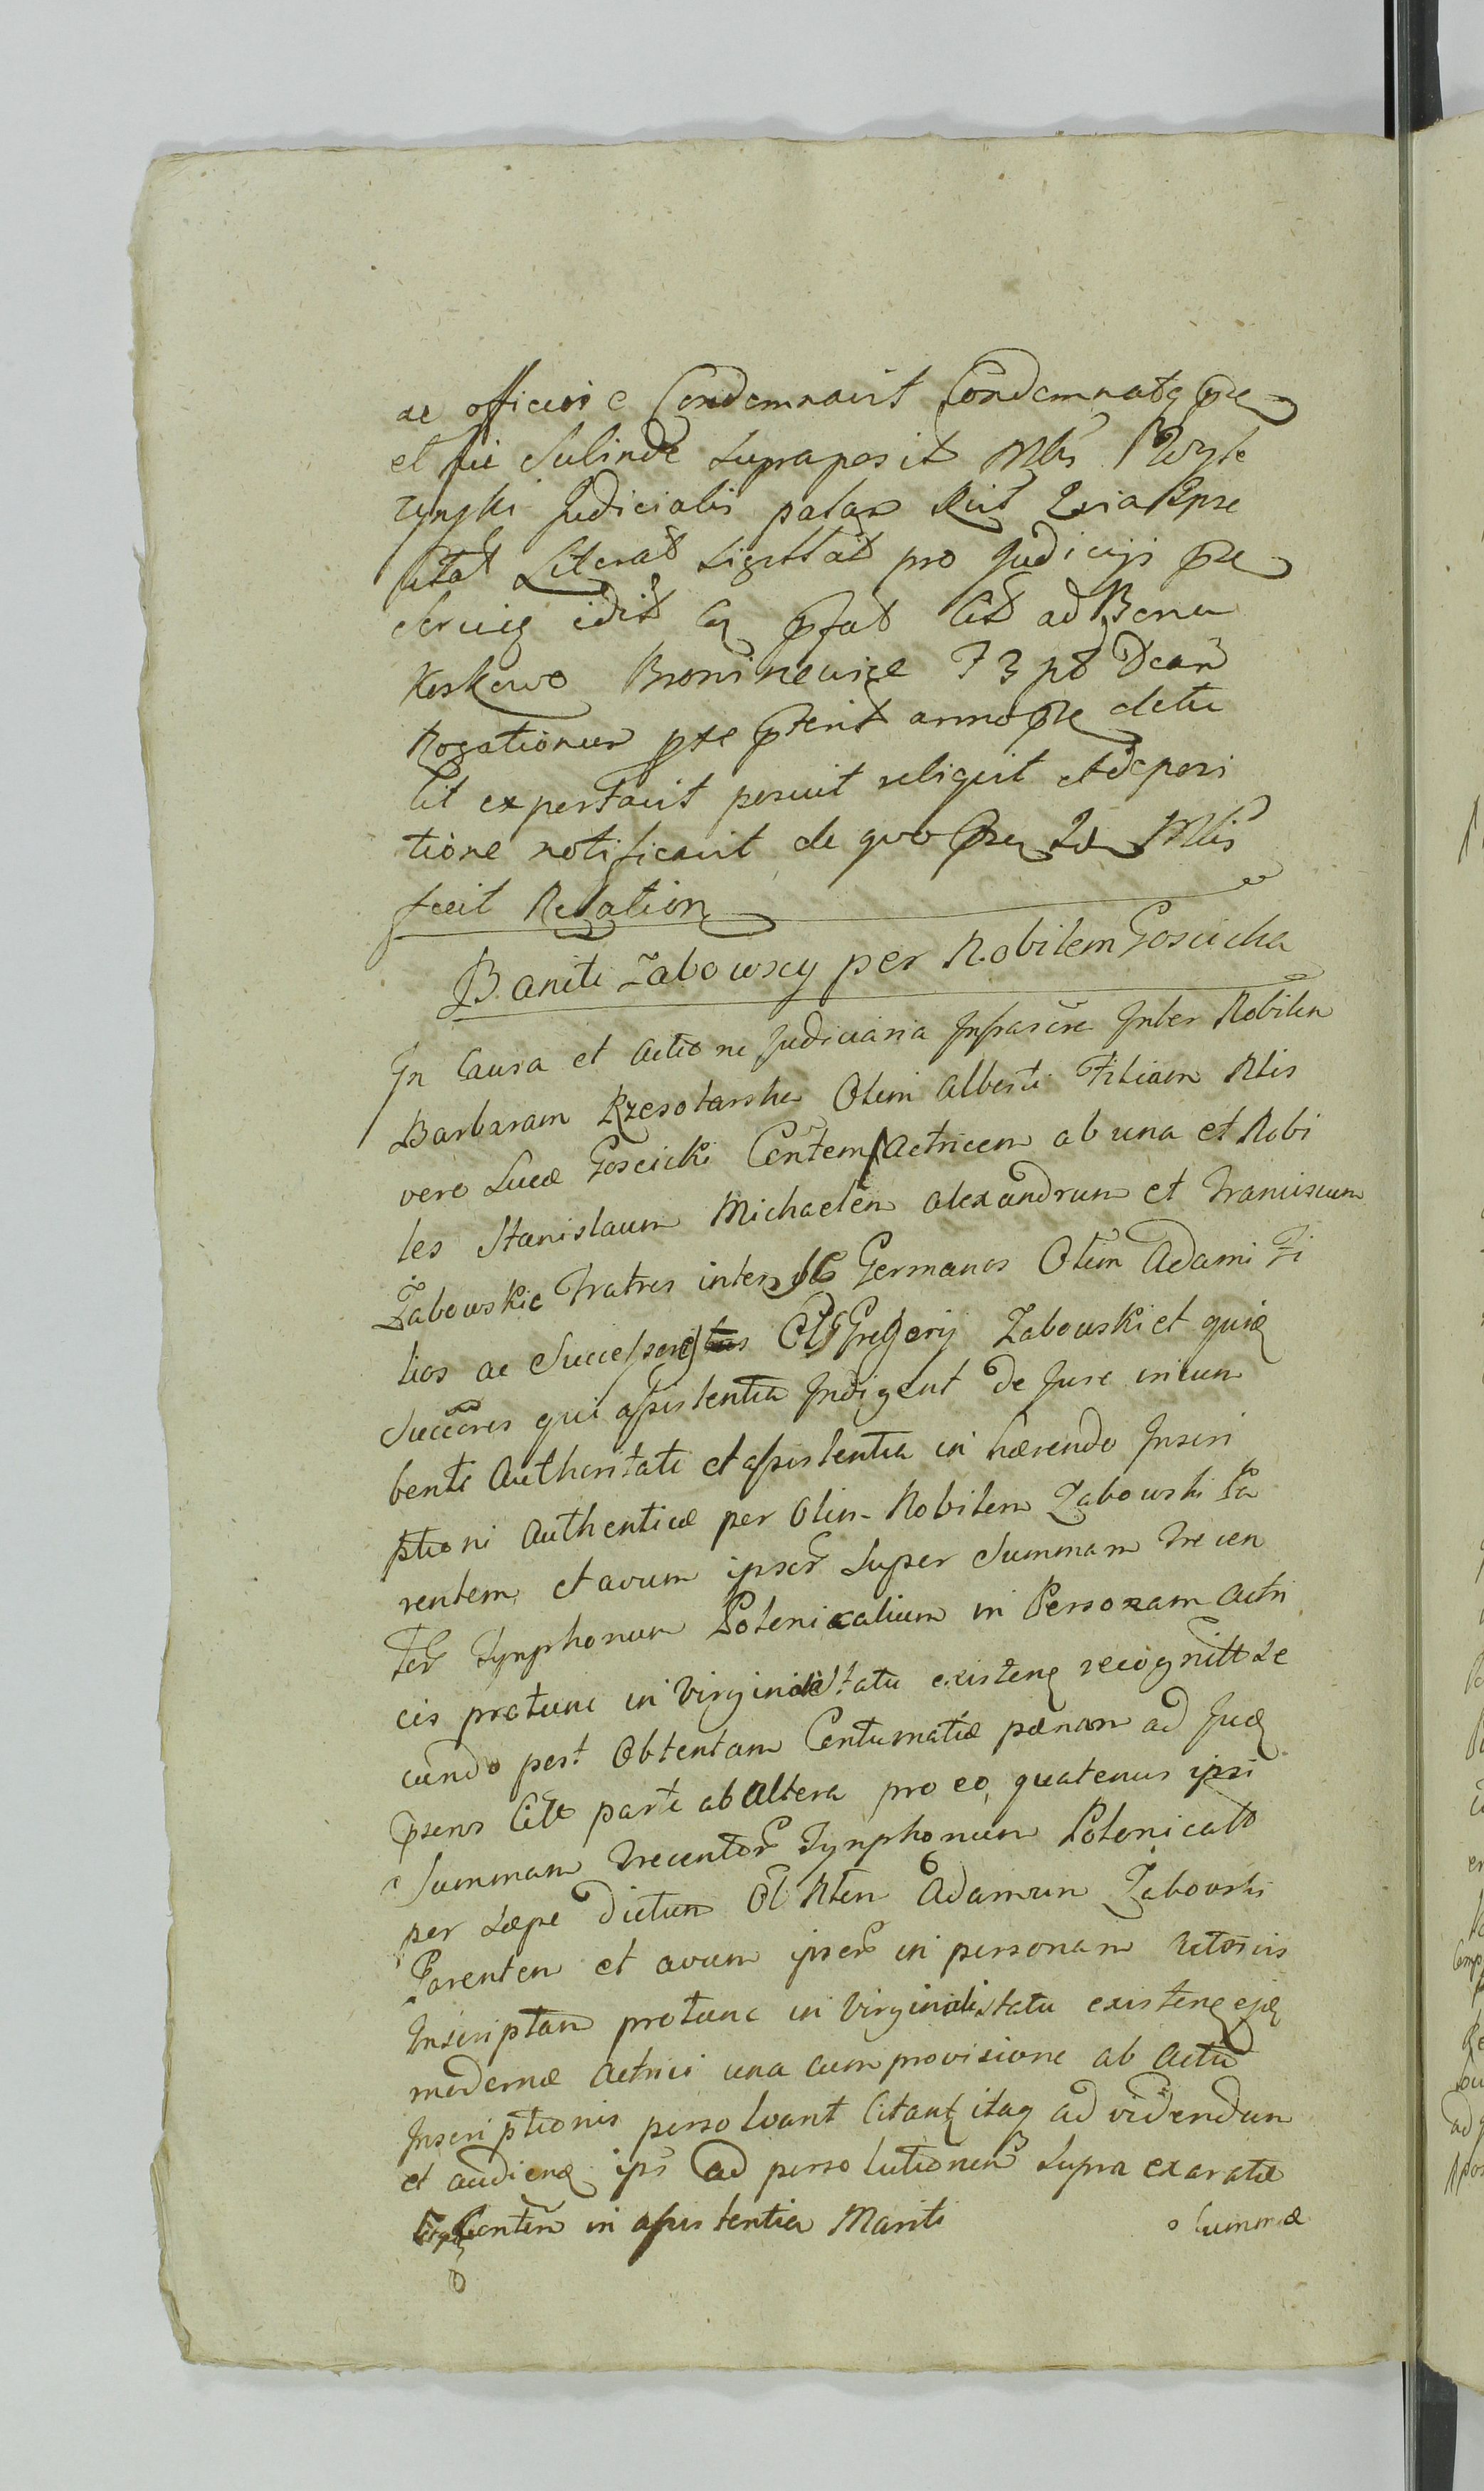 ac officiose Condemnavit Condemnatq pte
et hic Subinde supraposit Mtis Wyle
zynski Judicialis palam Rcit Quia Ipse
citat Literat Sigillat pro Judicijs pte
Servieg edit Cq pfat Cit ad Bona
Koskowo Broninewice F 3 pt Dcam
Rogationum pte pterit anno pte detu
lit exportavit posuit reliquit et deposi
tione notificavit de quo pteq Qd Mtis
fecit Relation
Baniti Zabowscy per Nobilem Goscicka
In Causa et Actione Judiciaria Infrascre Inter Nobilem
Barbaram Rzesotarska Olim Alberti Filiam Nlis
vero Lucæ Goscicki Contem Actricem ab una et Nobi
les Stanislaum Michaelem Alexandrum et Franciscum
Zabowskie Fratres inter se Germanos Olim Adami Fi
lios ac Successores Ol Gregorij Zabowski et quiq
Succores qui assistentia Indigent de Jure incum
benti Authoritate et assistentia in hærendo Inscri
ptioni Authenticæ per Olim Nobilem Zabowski Pa
rentem et avum ipsor Super Summam Trecen
tor Tynphonum Polonicalium in Personam Actri
cis protunc in Virginali Statu existenq recognitt Se
cundo post Obtentam Contumatiæ pænam ad Juq
psens Citt parte ab Altera pro eo, quatenus ipsi
Summam Trecentor Tynphonum Polonicall
per Sæpe dictum Ol Nlem Adamum Zabowski
Parentem et avum ipsor in personam Actricis
Inscriptam protunc in Virginali Statu existenq ejq
modernæ Actrici una cum provisione ab Actu
Inscriptionis persolvant Citantq itaq ad videndum
et audienq ips ad persolutionem Supra exaratæ
Contem in assistentia Mariti
Summæ